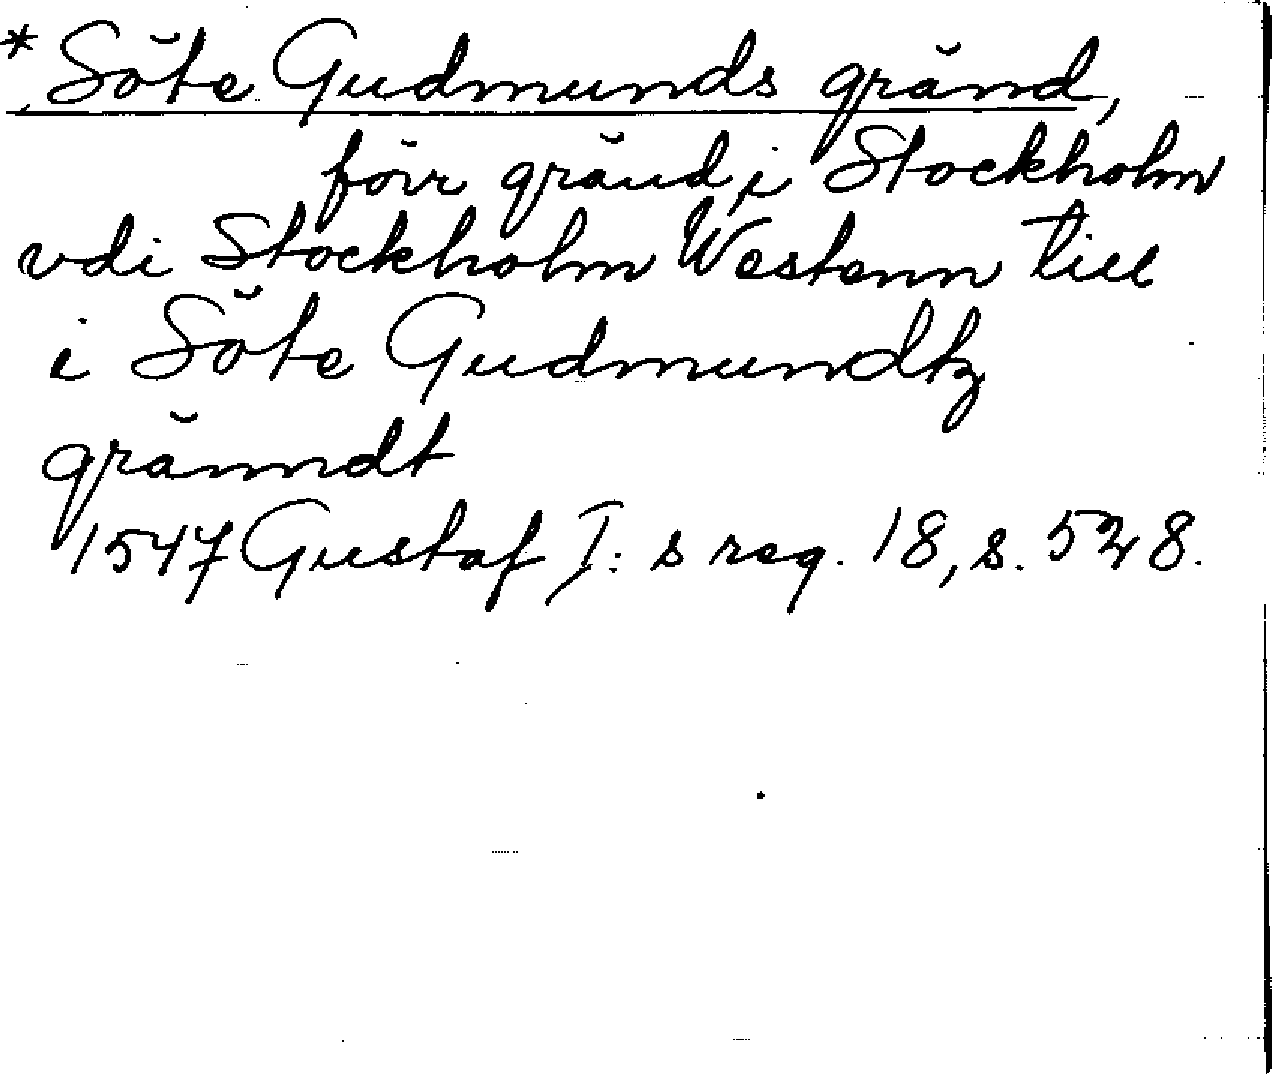 * Söte Gudmunds gränd,
förr gränd i Stockholm
vdi Stockholm Westenn till
i Söte Gudmundtz
gränndt
1547 Gustaf I:s reg. 18, s. 528.